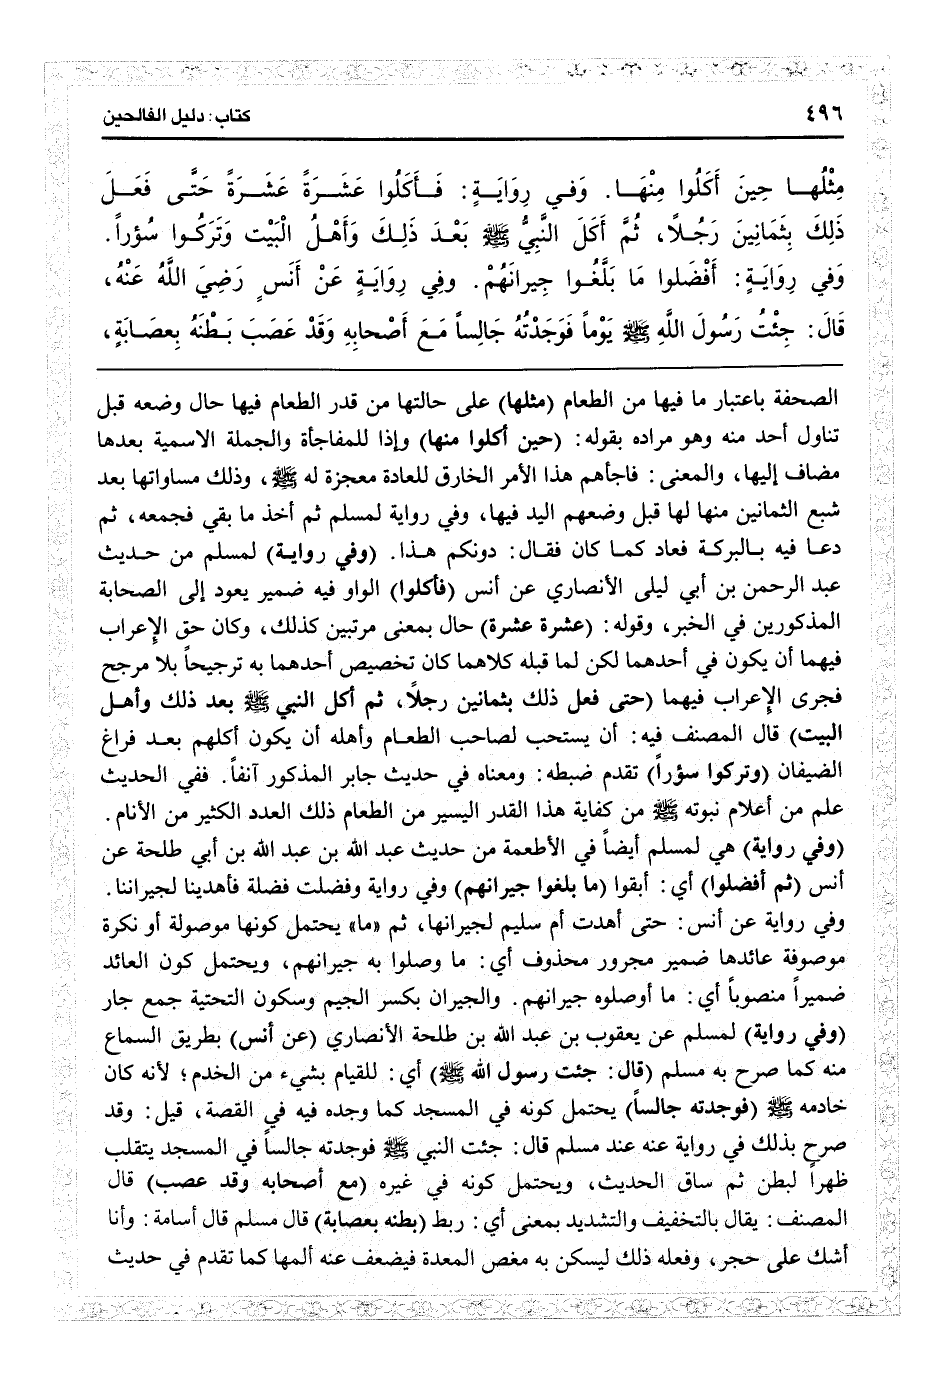 ٤٩٦ كتاب: دليل الفالحين
مِثْلُهـا حِينَ أَكَلُوا مِنْهَـا. وَفـي رِوَايَـةٍ: فَـأَكَلُوا عَشَـرَةً عَشَـرَةً حَتَّـى فَعَـلَ
ذٰلِكَ بِثَمَانِينَ رَجُـلاً، ثُمَّ أَكَلَ النَّبِيُّ ﷺ بَعْـدَ ذٰلِـكَ وَأَهْـلُ الْبَيْت وَتَرَكُـوا سُؤراً.
وَفي رِوَايَـةٍ: أَفْضَلوا مَا بَلَّغُـوا جِيرانَهُمْ. وفِي رِوَايَـةٍ عَنْ أَنَس رَضِيَ اللَّهُ عَنْهُ،
قَالَ: جِئْتُ رَسُولَ اللَّهِ ﷺ يَوْماً فَوَجَدْتُهُ جَالِساً مَـعَ أَصْحابِهِ وَقَدْ عَصَبَ بَـطْنَهُ بِعصَـابَةٍ،
الصحفة باعتبار ما فيها من الطعام (مثلها) على حالتها من قدر الطعام فيها حال وضعه قبل
تناول أحد منه وهو مراده بقوله: (حين أكلوا منها) وإذا للمفاجأة والجملة الاسمية بعدها
مضاف إليها، والمعنى: فاجأهم هذا الأمر الخارق للعادة معجزة له ﷺ، وذلك مساواتها بعد
شبع الثمانين منها لها قبل وضعهم اليد فيها، وفي رواية لمسلم ثم أخذ ما بقي فجمعه، ثم
دعـا فيه بـالبركـة فعاد كمـا كان فقـال: دونكم هـذا. (وفي روايـة) لمسلم من حـديث
عبد الرحمن بن أبي ليلى الأنصاري عن أنس (فأكلوا) الواو فيه ضمير يعود إلى الصحابة
المذكورين في الخبر، وقوله: (عشرة عشرة) حال بمعنى مرتبين كذلك، وكان حق الإعراب
فيهما أن يكون في أحدهما لكن لما قبله كلاهما كان تخصيص أحدهما به ترجيحاً بلا مرجح
فجرى الإعراب فيهما (حتى فعل ذلك بثمانين رجلاً، ثم أكل النبي ﷺ بعد ذلك وأهـل
البيت) قال المصنف فيه: أن يستحب لصاحب الطعـام وأهله أن يكون أكلهم بعـد فراغ
الضيفان (وتركوا سؤراً) تقدم ضبطه: ومعناه في حديث جابر المذكور آنفاً. ففي الحديث
علم من أعلام نبوته ﷺ من كفاية هذا القدر اليسير من الطعام ذلك العدد الكثير من الأنام.
(وفي رواية) هي لمسلم أيضاً في الأطعمة من حديث عبد الله بن عبد الله بن أبي طلحة عن
أنس (ثم أفضلوا) أي: أبقوا (ما بلغوا جيرانهم) وفي رواية وفضلت فضلة فأهدينا لجيراننا.
وفي رواية عن أنس: حتى أهدت أم سليم لجيرانها، ثم «ما» يحتمل كونها موصولة أو نكرة
موصوفة عائدها ضمير مجرور محذوف أي: ما وصلوا به جيرانهم، ويحتمل كون العائد
ضميراً منصوباً أي: ما أوصلوه جيرانهم. والجيران بكسر الجيم وسكون التحتية جمع جار
(وفي رواية) لمسلم عن يعقوب بن عبد الله بن طلحة الأنصاري (عن أنس) بطريق السماع
منه كما صرح به مسلم (قال: جئت رسول الله ﷺ) أي: للقيام بشيء من الخدم؛ لأنه كان
خادمه ﷺ (فوجدته جالساً) يحتمل كونه في المسجد كما وجده فيه في القصة، قيل: وقد
صرح بذلك في رواية عنه عند مسلم قال: جئت النبي ﷺ فوجدته جالساً في المسجد يتقلب
ظهراً لبطن ثم ساق الحديث، ويحتمل كونه في غيره (مع أصحابه وقد عصب) قال
المصنف: يقال بالتخفيف والتشديد بمعنى أي: ربط (بطنه بعصابة) قال مسلم قال أسامة: وأنا
أشك على حجر، وفعله ذلك ليسكن به مغص المعدة فيضعف عنه ألمها كما تقدم في حديث